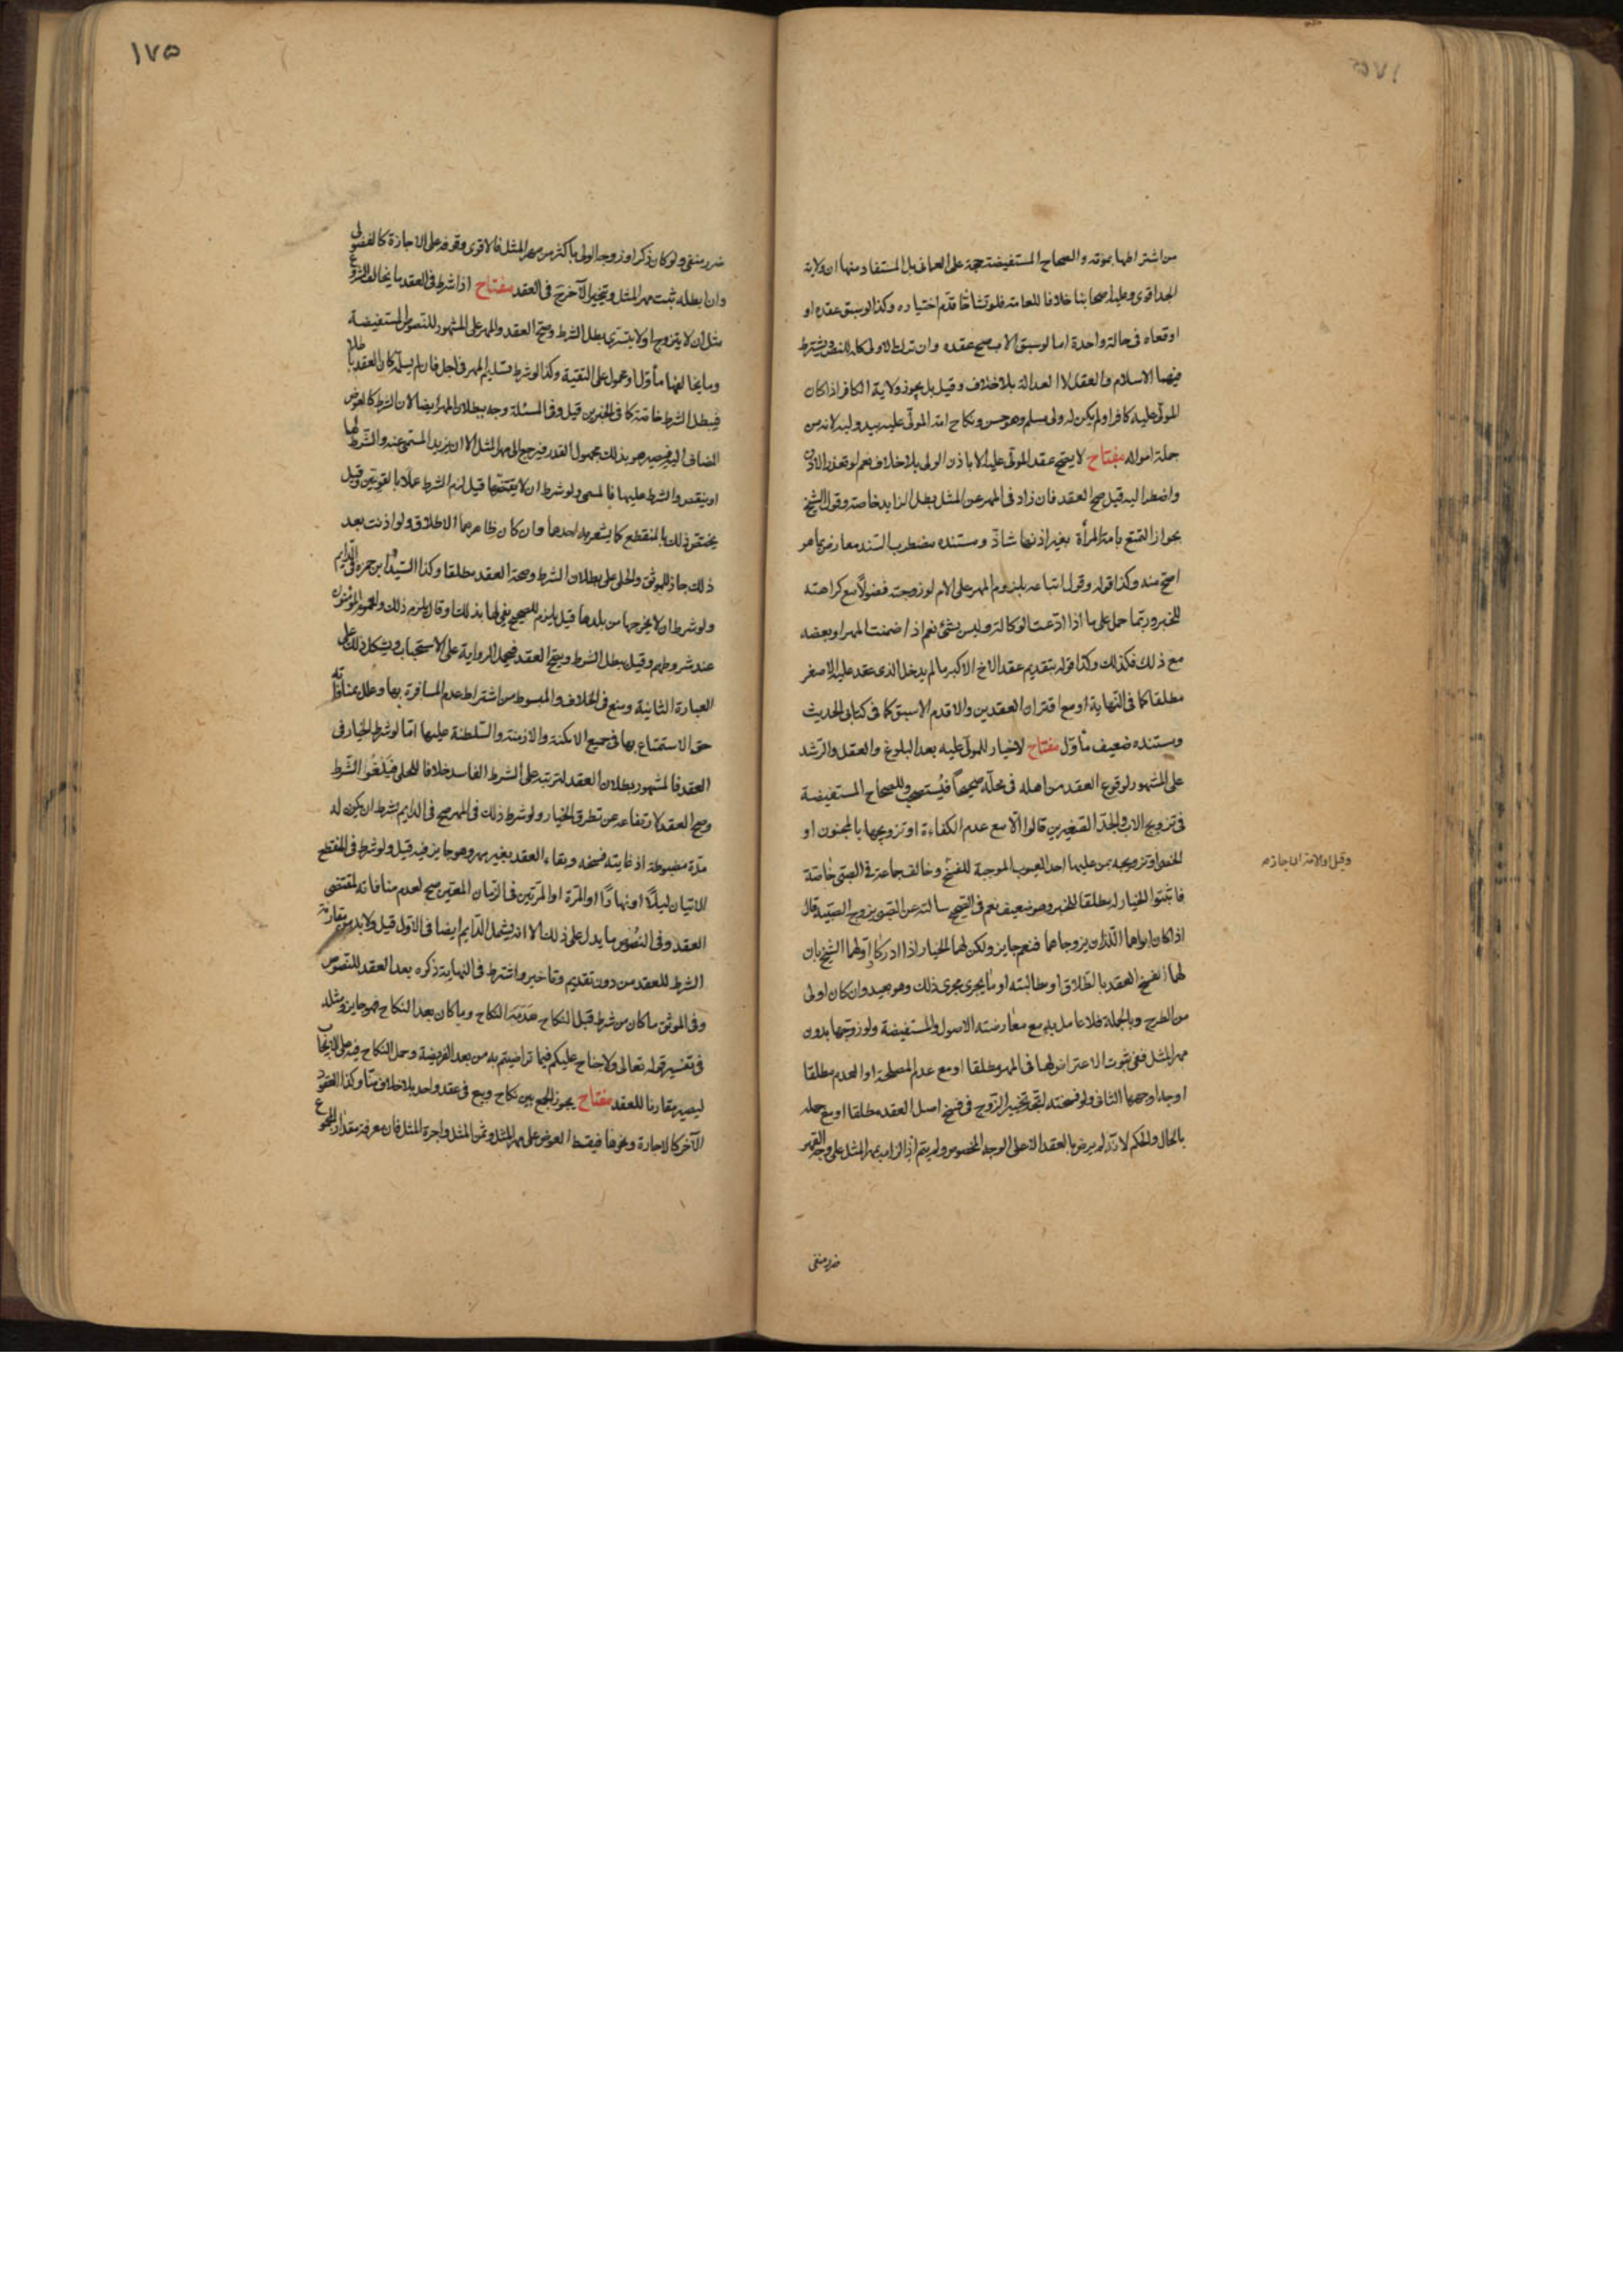 من اشتراطها بموته والصحاح المستفيضة حجة على العماني بل المستفاد منها ان ولاية
الجد اقوى وعليه اصحابنا خلافا للعامة فلو تشاحّا قدّم اختياره وكذا لو سبق عقده او
اوقعاه في حالة واحدة اما لو سبق الاب صح عقده وان ترك الاولى كله للنصوص ويشترط
فيهما الاسلام والعقل لا العدالة بلا خلاف وقيل بل يجوز ولاية الكافر اذا كان
المولّى عليه كافرا ولم يكن له ولى مسلم وهو حسن ونكاح امة المولّى عليه بيد وليه لانه من
جملة امواله مفتاح لا يصح عقد المولّى عليه الا باذن الولى بلا خلاف نعم لو تعذر الاذن
واضطر اليه قيل صح العقد فان زاد في المهر عن المثل بطل الزايد خاصة وقول الشيخ
بجواز التمتع بامة المرأة بغير اذنها شاذّ ومستنده مضطرب السند معارض بما هو
اصح منه وكذا قوله وقول اتباعه بلزوم المهر على الام لو زوجته فضولاً مع كراهته
للخبر وربما حمل على ما اذا ادّعت الوكالة وليس بشئ نعم اذا ضمنت المهر او بعضه
مع ذلك فكذلك وكذا قوله بتقديم عقد الاخ الاكبر ما لم يدخل الذى عقد عليه الاصغر
مطلقا كما في النهاية او مع اقتران العقدين والا قدم الاسبق كما في كتابى الحديث
ومستنده ضعيف مأوّل مفتاح لا خيار للمولّى عليه بعد البلوغ والعقل والرشد
على المشهور لوقوع العقد من اهله في محلّه صحيحاً فيُستصحب وللصحاح المستفيضة
في تزويج الاب والجدّ الصغيرين قالوا الّا مع عدم الكفاءة او تزويجها بالمجنون او
الخصى او تزويجه بمن عليها احد العيوب الموجبة للفسخ وخالف جماعة في الصبى خاصة
فاثبتوا الخيار له مطلقا للخبر وهو ضعيف نعم في الصحيح سالته عن الصبى يزوج الصبية قال
اذا كان ابواهما اللّذان يزوجاهما فنعم جايز ولكن لهما الخيار اذا ادركا اوّلهما الشيخ بان
لهما فسخ العقد بالطلاق او مطالبته او ما يجرى مجرى ذلك وهو بعيد وان كان اولى
من الطرح وبالجملة فلا عامل به مع معارضته الاصول والمستفيضة ولو زوجها بدون
مهر المثل ففى ثبوت الاعتراض لها في المهر مطلقا او مع عدم المصلحة او العدم مطلقا
اوجه اوجهها الثانى ولو فسخته اتجه تخيير الزوج في فسخ اصل العقد مطلقا او مع جهله
بالحال والحكم لانه لم يرض بالعقد الا على الوجه المخصوص ولم يتم اذ الزامه بمهر المثل على وجه القهر
ضرر منفى
وقيل
١٧٥
ضرر منفى ولو كان ذكرا وزوجه الولى باكثر من مهر المثل فالاقوى وقوفه على الاجازة كالفضولى
وان ابطله ثبت مهر المثل وتخير الآخر في العقد مفتاح اذا شرط في العقد ما يخالف الشرع
مثل ان لا يتزوج او لا يتسرّى بطل الشرط وصح العقد والمهر على المشهور للنصوص المستفيضة
وما يخالفها مأوّل او محمول على التقية وكذا لو شرط تسليم المهر في اجل فان لم يسلمه كان العقد باطلا
فيبطل الشرط خاصة كما في الخبرين قيل وفي المسئلة وجه ببطلان المهر ايضا لان الشرط كالعوض
المضاف اليه فيصير هو بذلك مجهول القدر فيرجع الى مهر المثل الا ان يزيد المسمى عنه والشرط لها
او ينقص والشرط عليها فالمسمى ولو شرط ان لا يفتضّها قيل لزم الشرط عملاً بالقويّين وقيل
يختص ذلك بالمنقطع كما يشعر به احدها وان كان ظاهرهما الاطلاق ولو اذنت بعد
ذلك جاز للموثق والحلى على بطلان الشرط وصحة العقد مطلقا وكذا السيّد وابن حمزة في الدّايم
ولو شرط ان لا يخرجها من بلدها قيل يلزم للصحيح يفى لها بذلك او قال يلزمه ذلك ولعموم المؤمنون
عند شروطهم وقيل يبطل الشرط ويصح العقد فيحمل الرواية على الاستحباب ويشكل ذلك على
العبارة الثانية ومنع في الخلاف والمبسوط من اشتراط عدم المسافرة بها وعلل بمنافاته
حق الاستمتاع بها في جميع الامكنة والازمنة والسلطنة عليها امّا لو شرط الخيار في
العقد فالمشهور بطلان العقد لترتبه على الشرط الفاسد خلافا للحلى فيلغو الشرط
وصح العقد لارتفاعه عن تطرق الخيار ولو شرط ذلك في المهر صح في الدايم بشرط ان يكون له
مدّة مضبوطة اذ غايته فسخه وبقاء العقد بغير مهر وهو جايز فيه قيل ولو شرط في المنقطع
الاتيان ليلاً او نهاراً او المرّة او المرّتين في الزمان المعيّن صح لعدم منافاته لمقتضى
العقد وفي النصوص ما يدل على ذلك الا انه يشمل الدّايم ايضا في الاول قيل ولا بد من مقارنة
الشرط للعقد من دون تقديم وتاخير واشترط في النهاية ذكره بعد العقد للنصوص
وفي الموثق ما كان من شرط قبل النكاح هَدَمَهُ النكاح وما كان بعد النكاح فهو جايز ومثله
في تفسير قوله تعالى ولا جناح عليكم فيما تراضيتم به من بعد الفريضة وحمل النكاح فيه على الايجاب
ليصير مقارنا للعقد مفتاح يجوز الجمع بين نكاح وبيع في عقد واحد بلا خلاف منّا وكذا العقود
الآخر كالاجارة ونحوها فيقسط العوض على مهر المثل وثمن المثل واجرة المثل فان معرفة مقدار المجموع